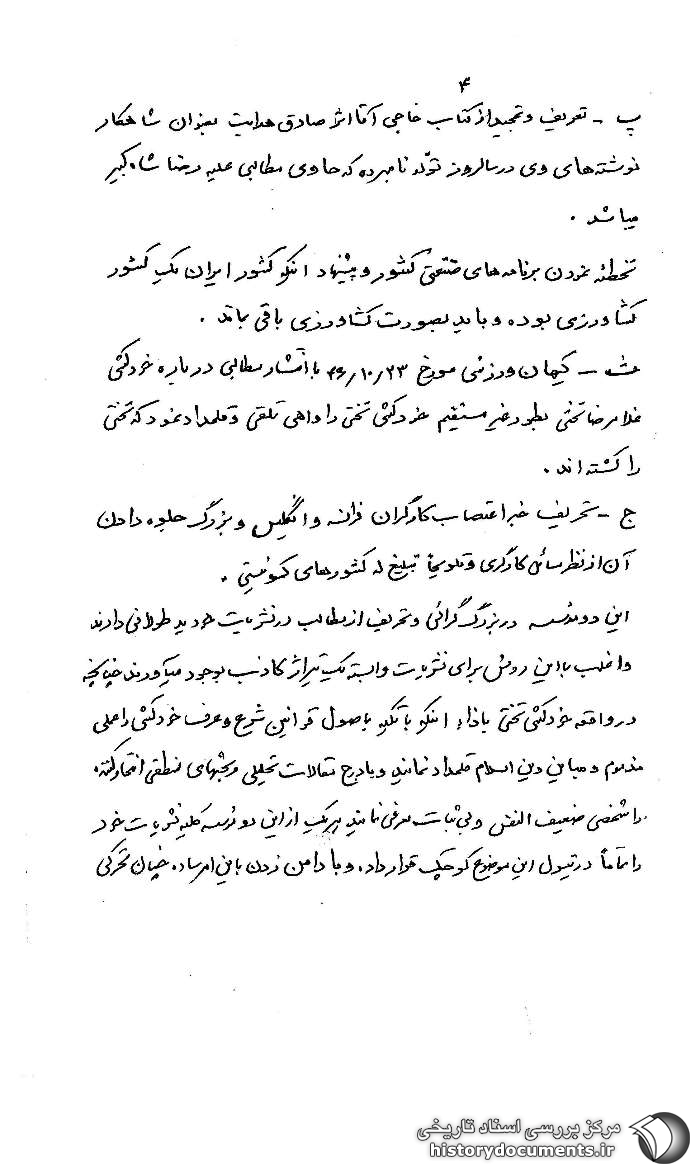 ۴
پ - تعریف و تمجید از کتاب حاجی آقا اثر صادق هدایت بعنوان شاهکار
نوشته‌های وی در سالروز تولد نامبرده که حاوی مطالبی علیه رضا شاه کبیر
میباشد .
تخطئه نمودن برنامه‌های صنعتی کشور و پیشنهاد اینکه کشور ایران یک کشور
کشاورزی بوده و باید بصورت کشاورزی باقی بماند .
ث - کیهان ورزشی مورخ ۴۶/۱۰/۲۳ با انتشار مطالبی درباره خودکشی
غلامرضا تختی بطور غیر مستقیم خودکشی تختی را واهی تلقی و قلمداد نمود که تختی
را کشته‌اند .
ج - تحریف خبر اعتصاب کارگران فرانسه و انگلیس و بزرگ جلوه دادن
آن از نظر مسائل کارگری و تلویحاً تبلیغ له کشورهای کمونیستی .
این دو موسسه در بزرگ گرائی و تحریف از مطالب در نشریات خود ید طولانی دارند
و اغلب با این روش برای نشریات وابسته یک تیراژ کاذب بوجود میآورند چنانچه
در واقعه خودکشی تختی باذاء اینکه با تکیه باصول قوانین شرع و عرف خودکشی را عملی
مذموم و مباین دین اسلام قلمداد نمایند و با درج مقالات تحلیلی و بحثهای منطقی انتحار کننده
را شخصی ضعیف النفس و بی ثبات معرفی نمایند هر یک از این دو موسسه کلیه نشریات خود
را تماماً در تیول این موضوع کوچک قرار داده و با دامن زدن باین امر ساده چنان تحرکی
مرکز بررسی اسناد تاریخی
historydocuments.ir